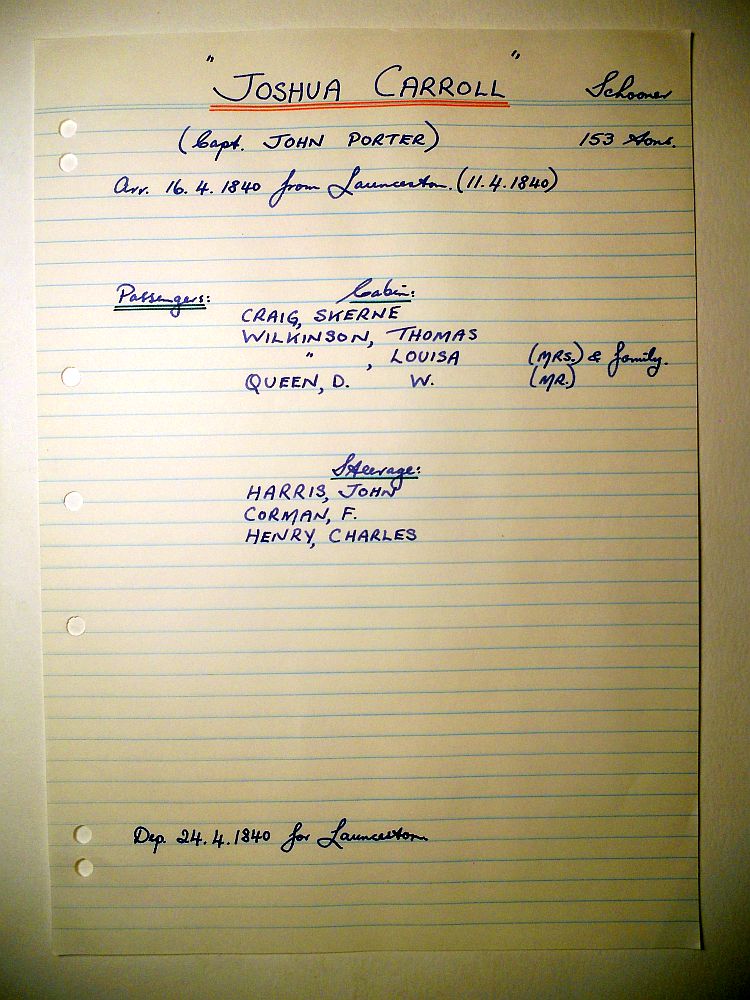 "JOSHUA CARROLL" Schooner
(Capt. JOHN PORTER) 153 tons.
Arr. 16.4.1840 from Launceston. (11.4.1840)
Passengers: Cabin:
CRAIG, SKERNE
WILKINSON, THOMAS
" , LOUISA (MRS.) & family.
QUEEN, D. W. (MR.)
Steerage:
HARRIS, JOHN
CORMAN, F.
HENRY, CHARLES
Dep. 24.4.1840 for Launceston.